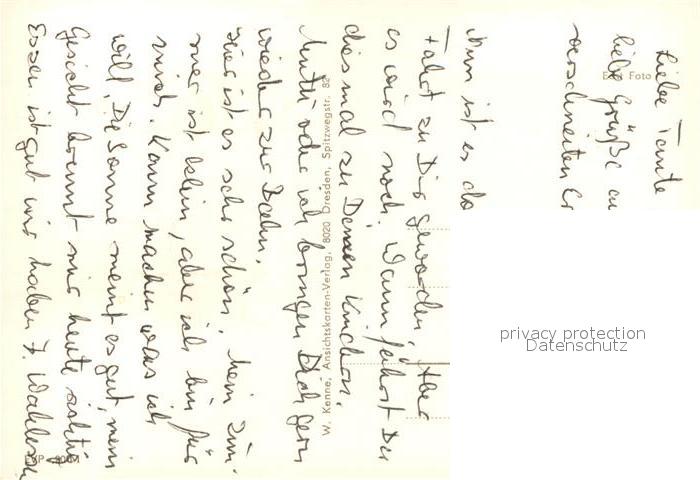 Liebe Tante
liebe Grüße au
verschneiten Er
Nun ist es do
Fahrt zu Dir geworden. Aber
es wird noch. Wann fährst Du
diesmal zu Deinen Kindern,
Mutti oder ich bringen Dich gern
wieder zur Bahn.
Hier ist es sehr schön. Mein Zim-
mer ist klein, aber ich bin für
mich. Kann machen was ich
will. Die Sonne meint es gut, mein
Gesicht brennt mir heute
Essen ist gut wir haben 7. Wahlessen
Echt Foto
W. Kenne, Ansichtskarten-Verlag, 8020 Dresden, Spitzwegstr. 82
privacy protection
Datenschutz